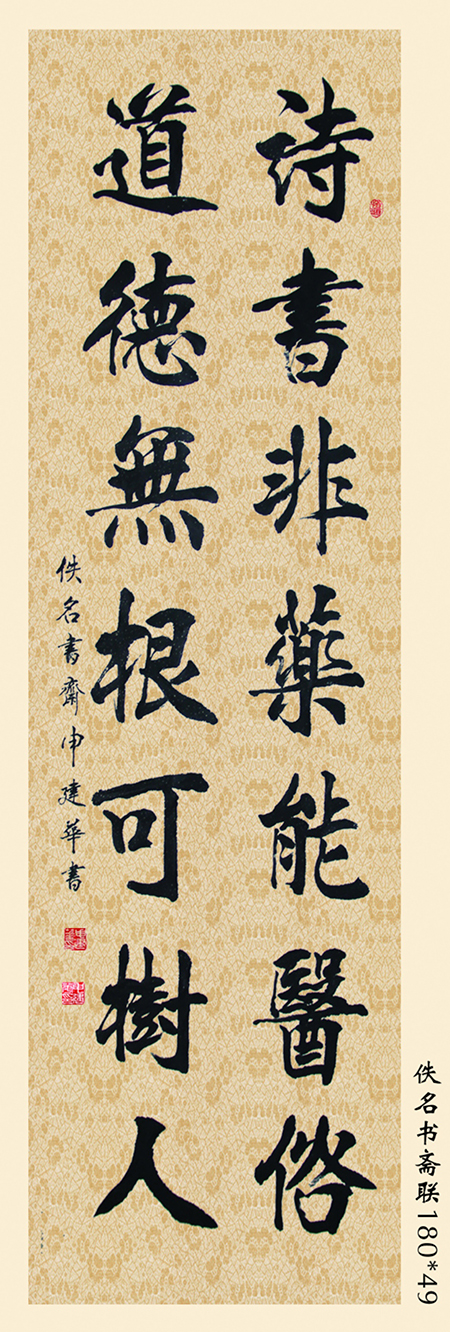 詩書非藥能醫俗
道德無根可樹人
佚名書齋申建華書
佚名书斋联180*49